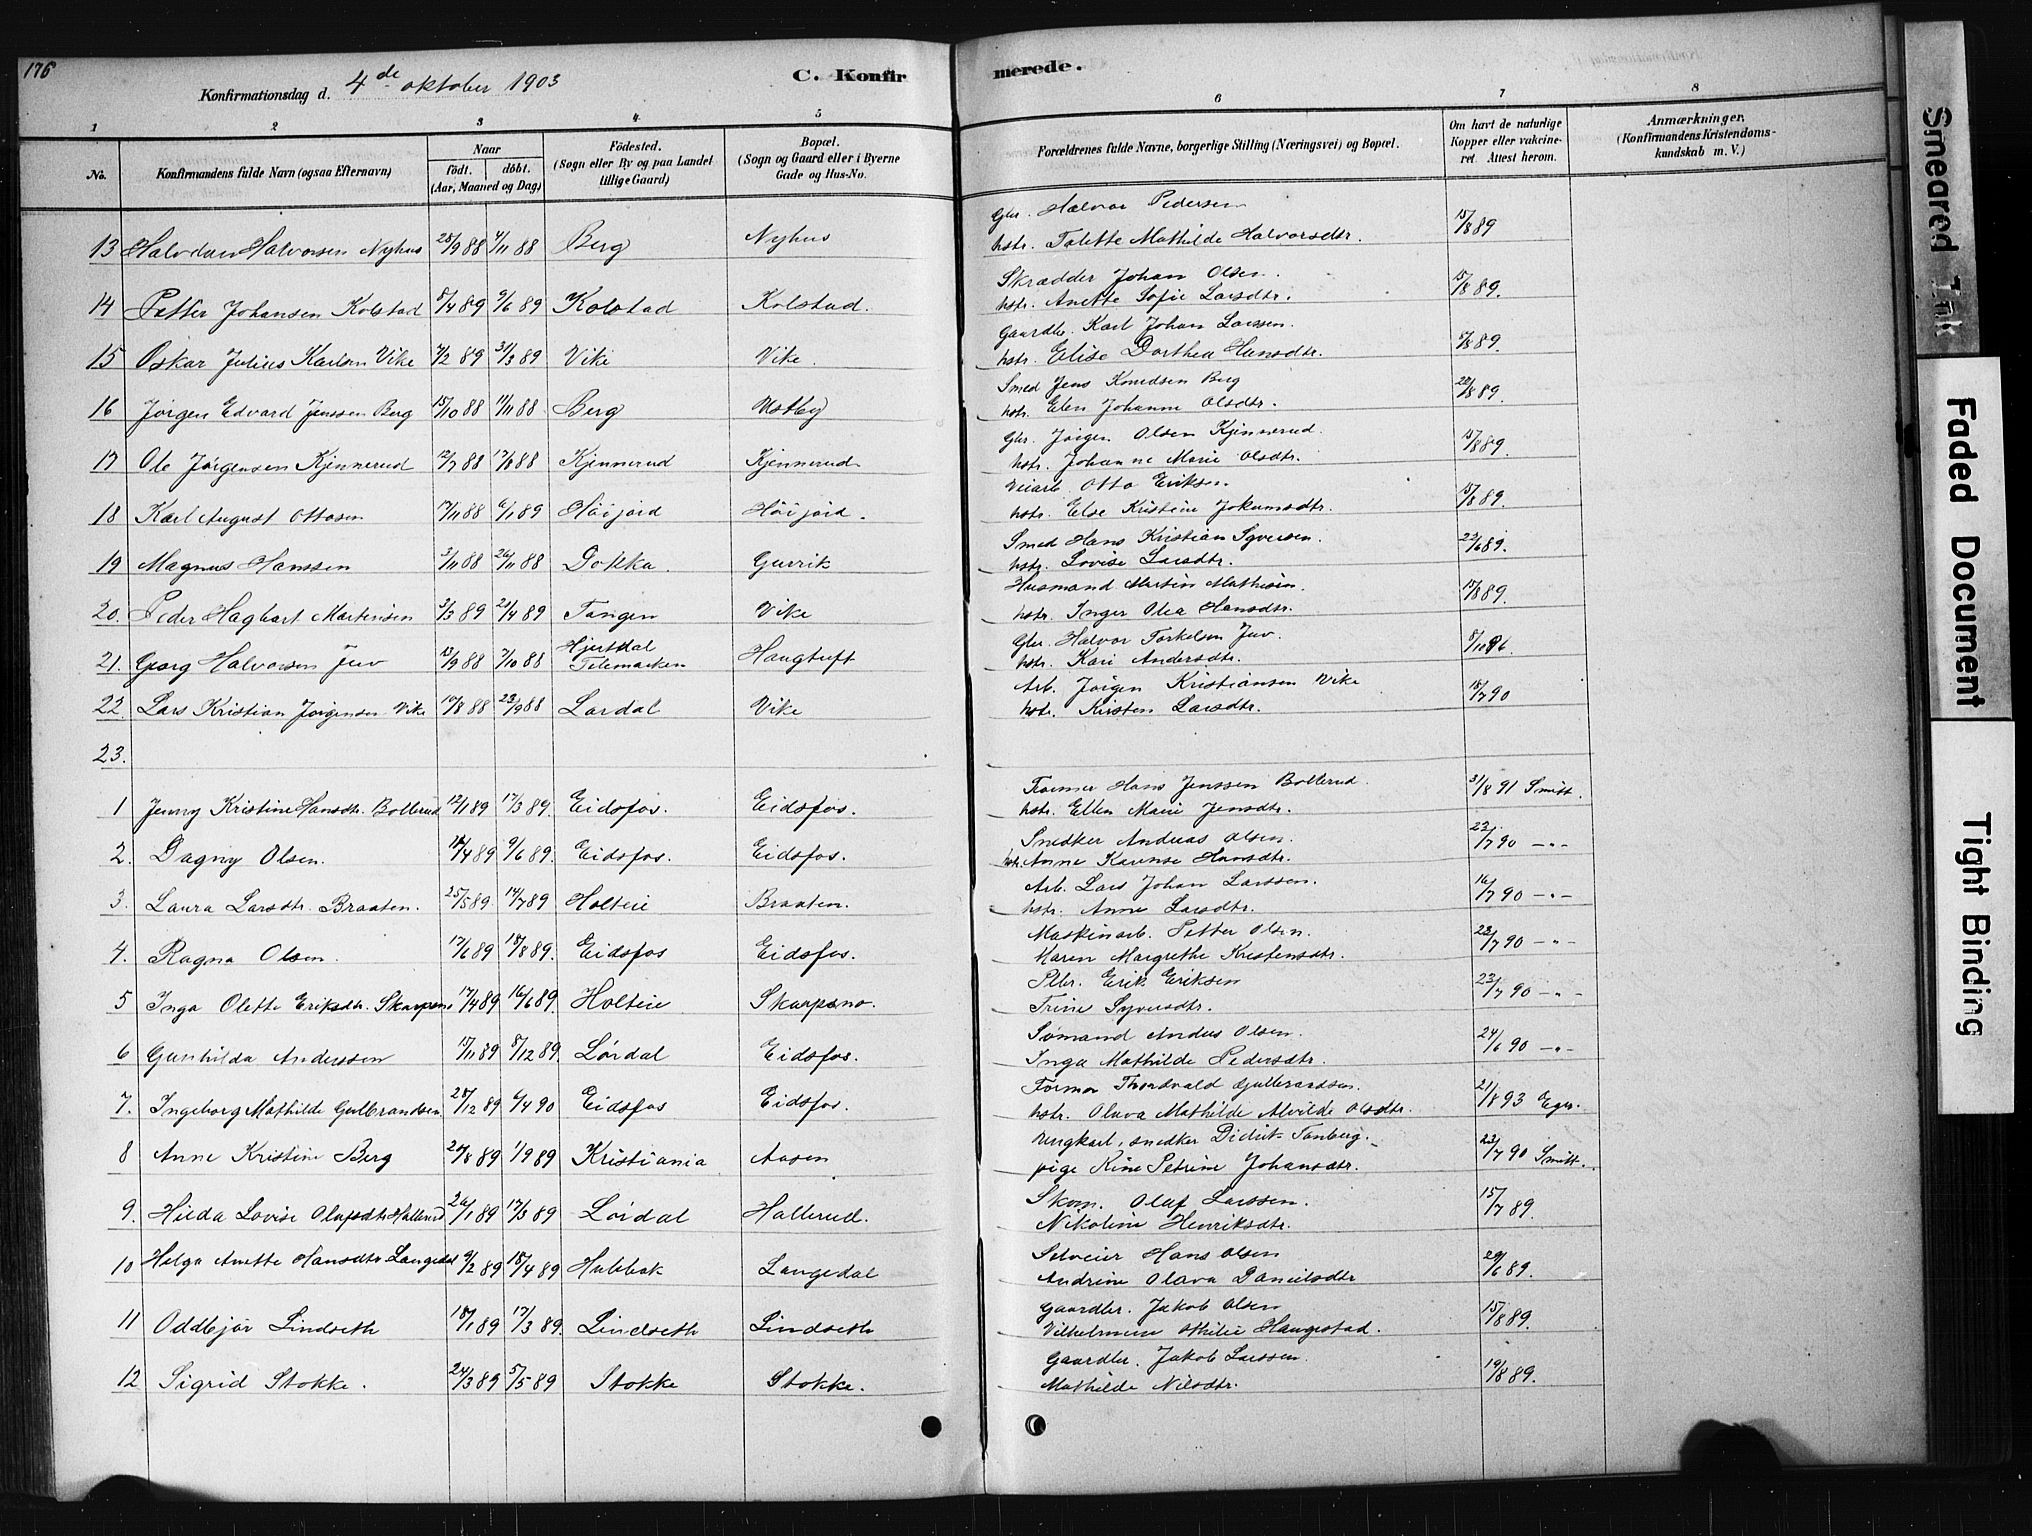 176
C. Konfirmerede.
Konfirmationsdag d. 4de oktober 1903
1 2 3 4 5 6 7 8
No.
Konfirmandens fulde Navn (ogsaa Efternavn)
Naar
födt. döbt.
(Aar, Maaned og Dag)
Födested.
(Sogn eller By og paa Landet
tillige Gaard)
Bopæl.
(Sogn og Gaard eller i Byerne
Gade og Hus-No.
Forældrenes fulde Navne, borgerlige Stilling (Næringsvei) og Bopæl.
Om havt de naturlige
Kopper eller vakcine-
ret. Attest herom.
Anmærkninger.
(Konfirmandens Kristendoms-
kundskab m. V.)
Gbr. Halvor Pedersen
13 Halvdan Halvorsen Nyhus 28/9 88 4/11 88 Berg Nyhus hstr. Talette Mathilde Halvorsdtr. 15/8 89
Skrædder Johan Olsen.
14 Petter Johansen Kolstad 8/4 89 9/6 89 Kolstad Kolstad. hstr. Anette Sofie Larsdtr. 15/8 89.
Gaardbr. Karl Johan Larssen.
15 Oskar Julius Karlsen Vike 7/2 89 31/3 89 Vike Vike. hstr. Elise Dorthea Hansdtr. /8 89.
Smed Jens Knudsen Berg
16 Jørgen Edvard Jenssen Berg 15/10 88 11/11 88 Berg Ustby hstr. Elen Johanne Olsdtr. 22/8 89.
Gbr. Jørgen Olsen Kjennerud.
17 Ole Jørgensen Kjennerud 12/7 88 /8 88 Kjennerud Kjennerud hstr. Johanne Marie Olsdtr. 15/8 89.
Veiarb. Otto Eriksen.
18 Karl August Ottosen 17/11 88 6/1 89 Höijord Höijord. hstr. Else Kristine Jokumsdtr. 15/8 89.
Smed Hans Kristian Syversen.
19 Magnus Hanssen 3/11 88 26/11 88 Dokka. hstr. Lovise Larsdtr. 22/6 89.
Husmand Martin Mathisen.
20. Peder Hagbart Martinsen 3/3 89 21/4 89 Tangen Vike hstr. Inger Olea Hansdtr. 15/8 89.
Gbr. Halvor Torkelsen Juv.
21. Georg Halvorsen Juv 13/9 88 7/10 88 Hjertdal Telemarken Haugtuft hstr. Kari Andersdtr. 8/10 96.
Arb. Jørgen Kristiansen Vike
22. Lars Kristian Jørgensen Vike 19/8 88 23/9 88 Lardal Vike hstr. Kirsten Larsdtr. 18/7 90
23.
Former Hans Jenssen Bollerud.
1 Jenny Kristine Hansdtr. Bollerud 12/1 89 17/3 89. Eidsfos. Eidsfos. hstr. Ellen Marie Jensdtr. 31/8 91 Smitt.
Snedker Andreas Olsen.
2. Dagny Olsen. 18/4 89 9/6 89. Eidsfos. Eidsfos. hstr. Anne Karense Hansdtr. 23/7 90 —"—
Arb. Lars Johan Larssen.
3. Laura Larsdtr. Braaten. 25/5 89. 14/7 89 Holteie Braaten. hstr. Anne Larsdtr. 16/7 90 —"—
Maskinarb. Petter Olsen.
4. Ragna Olsen. 17/6 89 18/8 89. Eidsfos Eidsfos. Karen Margrethe Kristensdtr. 23/7 90 —"—
Pbr. Erik Eriksen
5 Inga Olette Eriksdtr. Skarpsno 17/4 89 16/6 89. Holteie Skarpsno. Trine Syversdtr. 23/7 90 —"—
Sømand Anders Olsen.
6 Gunhilda Anderssen 17/11 89 8/12 89. Lørdal Eidsfos. Inga Mathilde Pedersdtr. 24/6 90 —"—
Former Thordvald Gulbrandsen.
7. Ingeborg Mathilde Gulbrandsen 28/12 89 6/4 90 Eidsfos Eidsfos. hstr. Olava Mathilde Alvilde Olsdtr. 21/8 93 Eger.
Ungkarl, snedker Didrik Tanberg.
8 Anne Kristine Berg 24/8 89 1/9 89 Kristiania Aasen pige Rine Petrine Johansdtr. 23/7 90 Smitt.
Skom. Olaf Larssen.
9. Hilda Lovise Olafsdtr Hallerud 26/1 89 17/3 89 Lørdal Hallerud. Nikoline Henriksdtr. 15/7 89.
Selveier Hans Olsen
10 Helga Anette Hansdtr. Langedal 9/2 89 18/4 89 Hulebak Langedal Andrine Olava Danielsdtr 29/6 89.
Gaardbr. Jakob Olsen
11 Oddbjør Lindseth 18/1 89 17/3 89. Lindseth Lindseth Vilhelmine Othilie Haugestad. 15/8 89.
Gaardbr. Jakob Larssen.
12 Sigrid Stokke. 24/3 89 5/5 89 Stokke Stokke. Mathilde Nilsdtr. 19/8 89.
Smeared Ink
Faded Document
Tight Binding